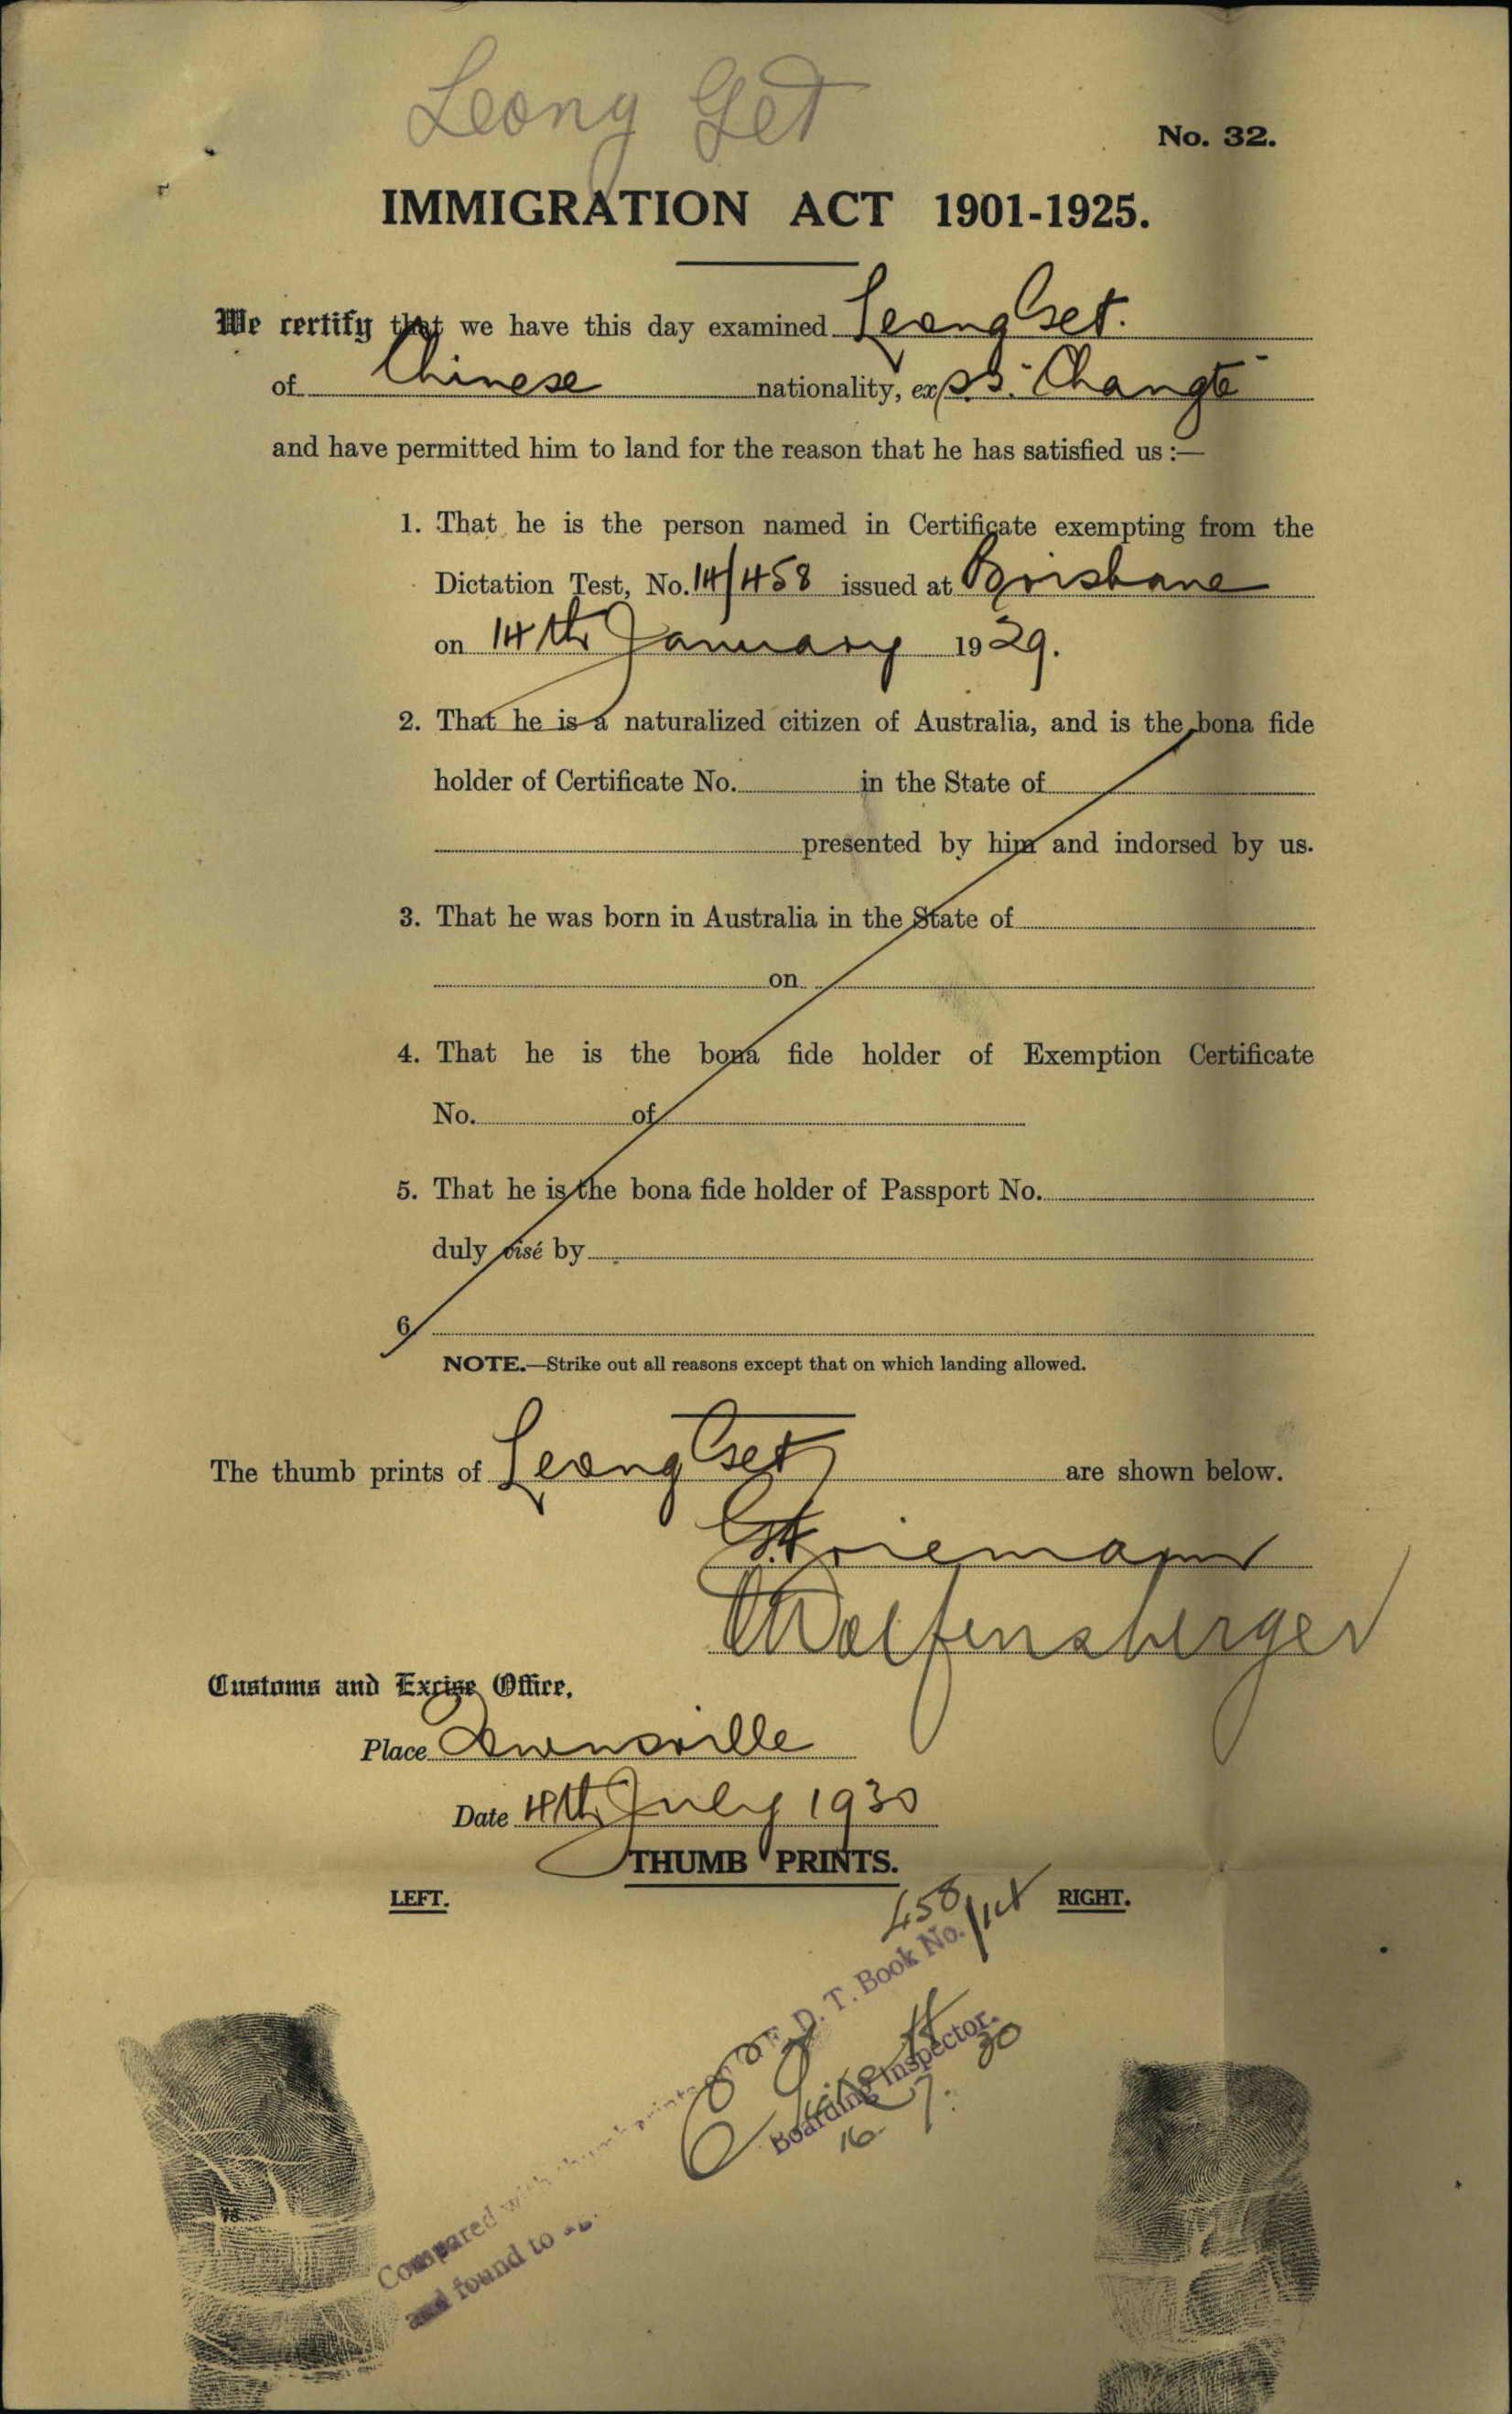 Leong Get
No. 32.
IMMIGRATION ACT 1901-1925.
We certify that we have this day examined Leong Get.
of Chinese nationality, ex s.s. "Changte"
and have permitted him to land for the reason that he has satisfied us :—
1. That he is the person named in Certificate exempting from the
Dictation Test, No. 14/458 issued at Brisbane
on 14th January 1929.
2. That he is a naturalized citizen of Australia, and is the bona fide
holder of Certificate No. in the State of
presented by him and indorsed by us.
3. That he was born in Australia in the State of
on
4. That he is the bona fide holder of Exemption Certificate
No. of
5. That he is the bona fide holder of Passport No.
duly visé by
6
NOTE.—Strike out all reasons except that on which landing allowed.
The thumb prints of Leong Get are shown below.
Wolfensberger
Customs and Excise Office,
Place Townsville
Date 4th July 1930
THUMB PRINTS.
LEFT.
RIGHT.
458/14
Compared with thumb prints on D. T. Book No.
and found to
Boarding Inspector.
16. 7. 30